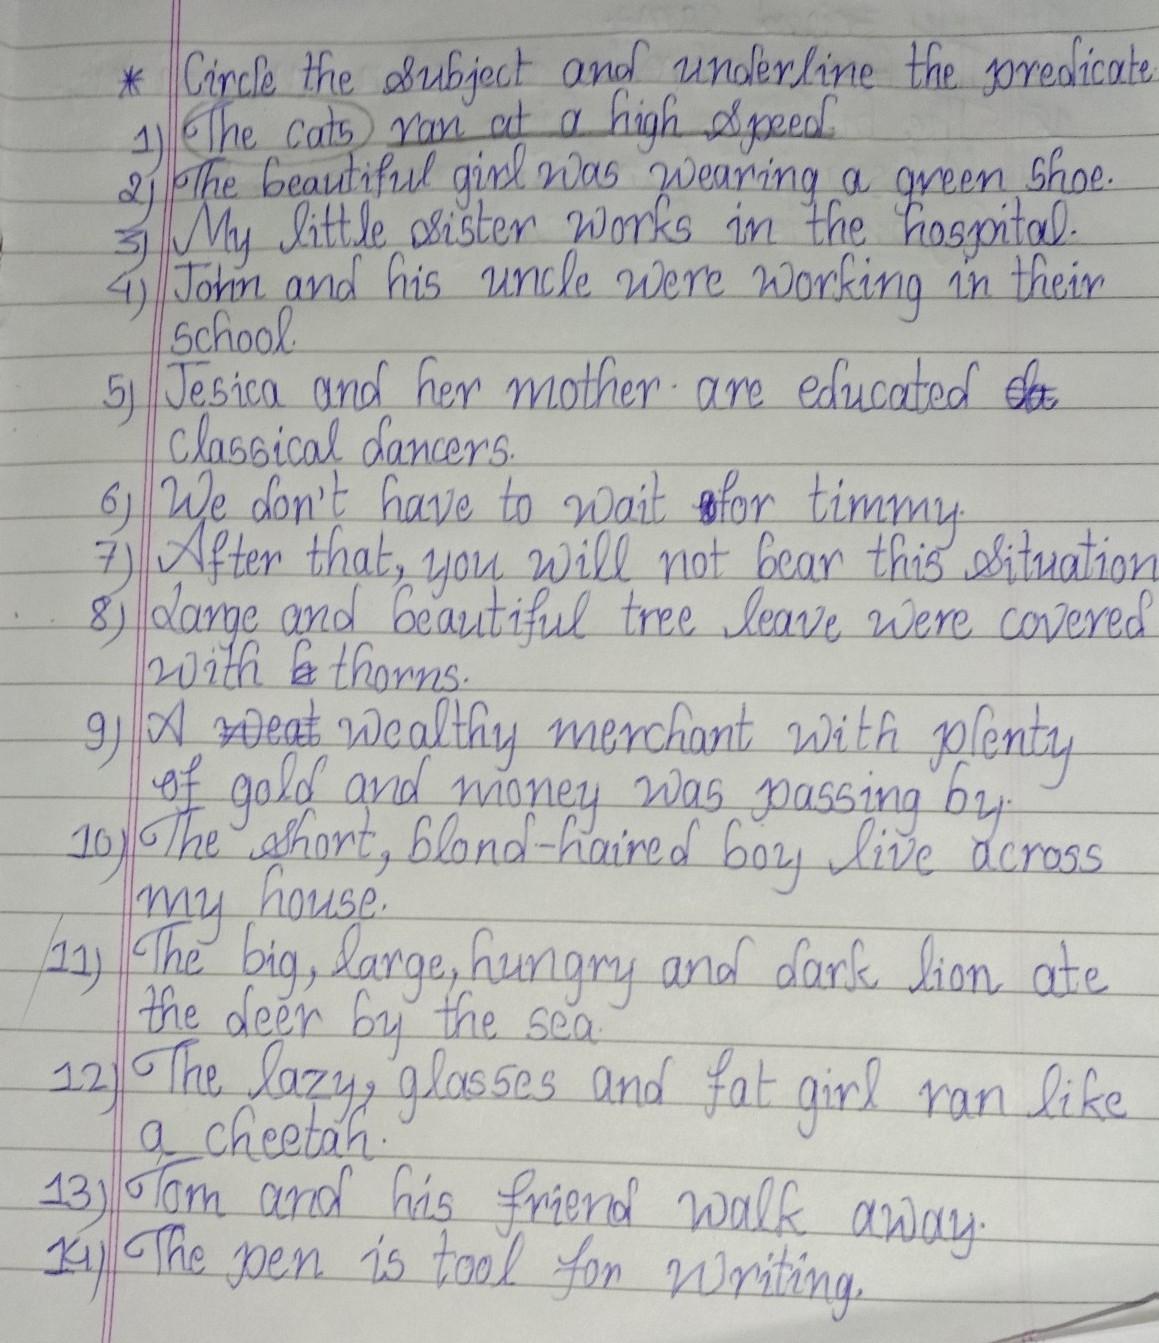 * Circle the subject and underline the predicate
1) The cats ran at a high speed
2) The beautiful girl was wearing a green shoe.
3) My little sister works in the hospital.
4) John and his uncle were working in their
school.
5) Jesica and her mother. are educated
classical dancers.
6) We don't have to wait for timmy.
7) After that, you will not bear this situation
8) large and beautiful tree leave were covered
with thorns.
9) A wealthy merchant with plenty
of gold and money was passing by.
10) The short, blond-haired boy live across
my house.
11) The big, large, hungry and dark lion ate
the deer by the sea.
12) The lazy, glasses and fat girl ran like
a cheetah.
13) Tom and his friend walk away.
14) The pen is tool for writing.